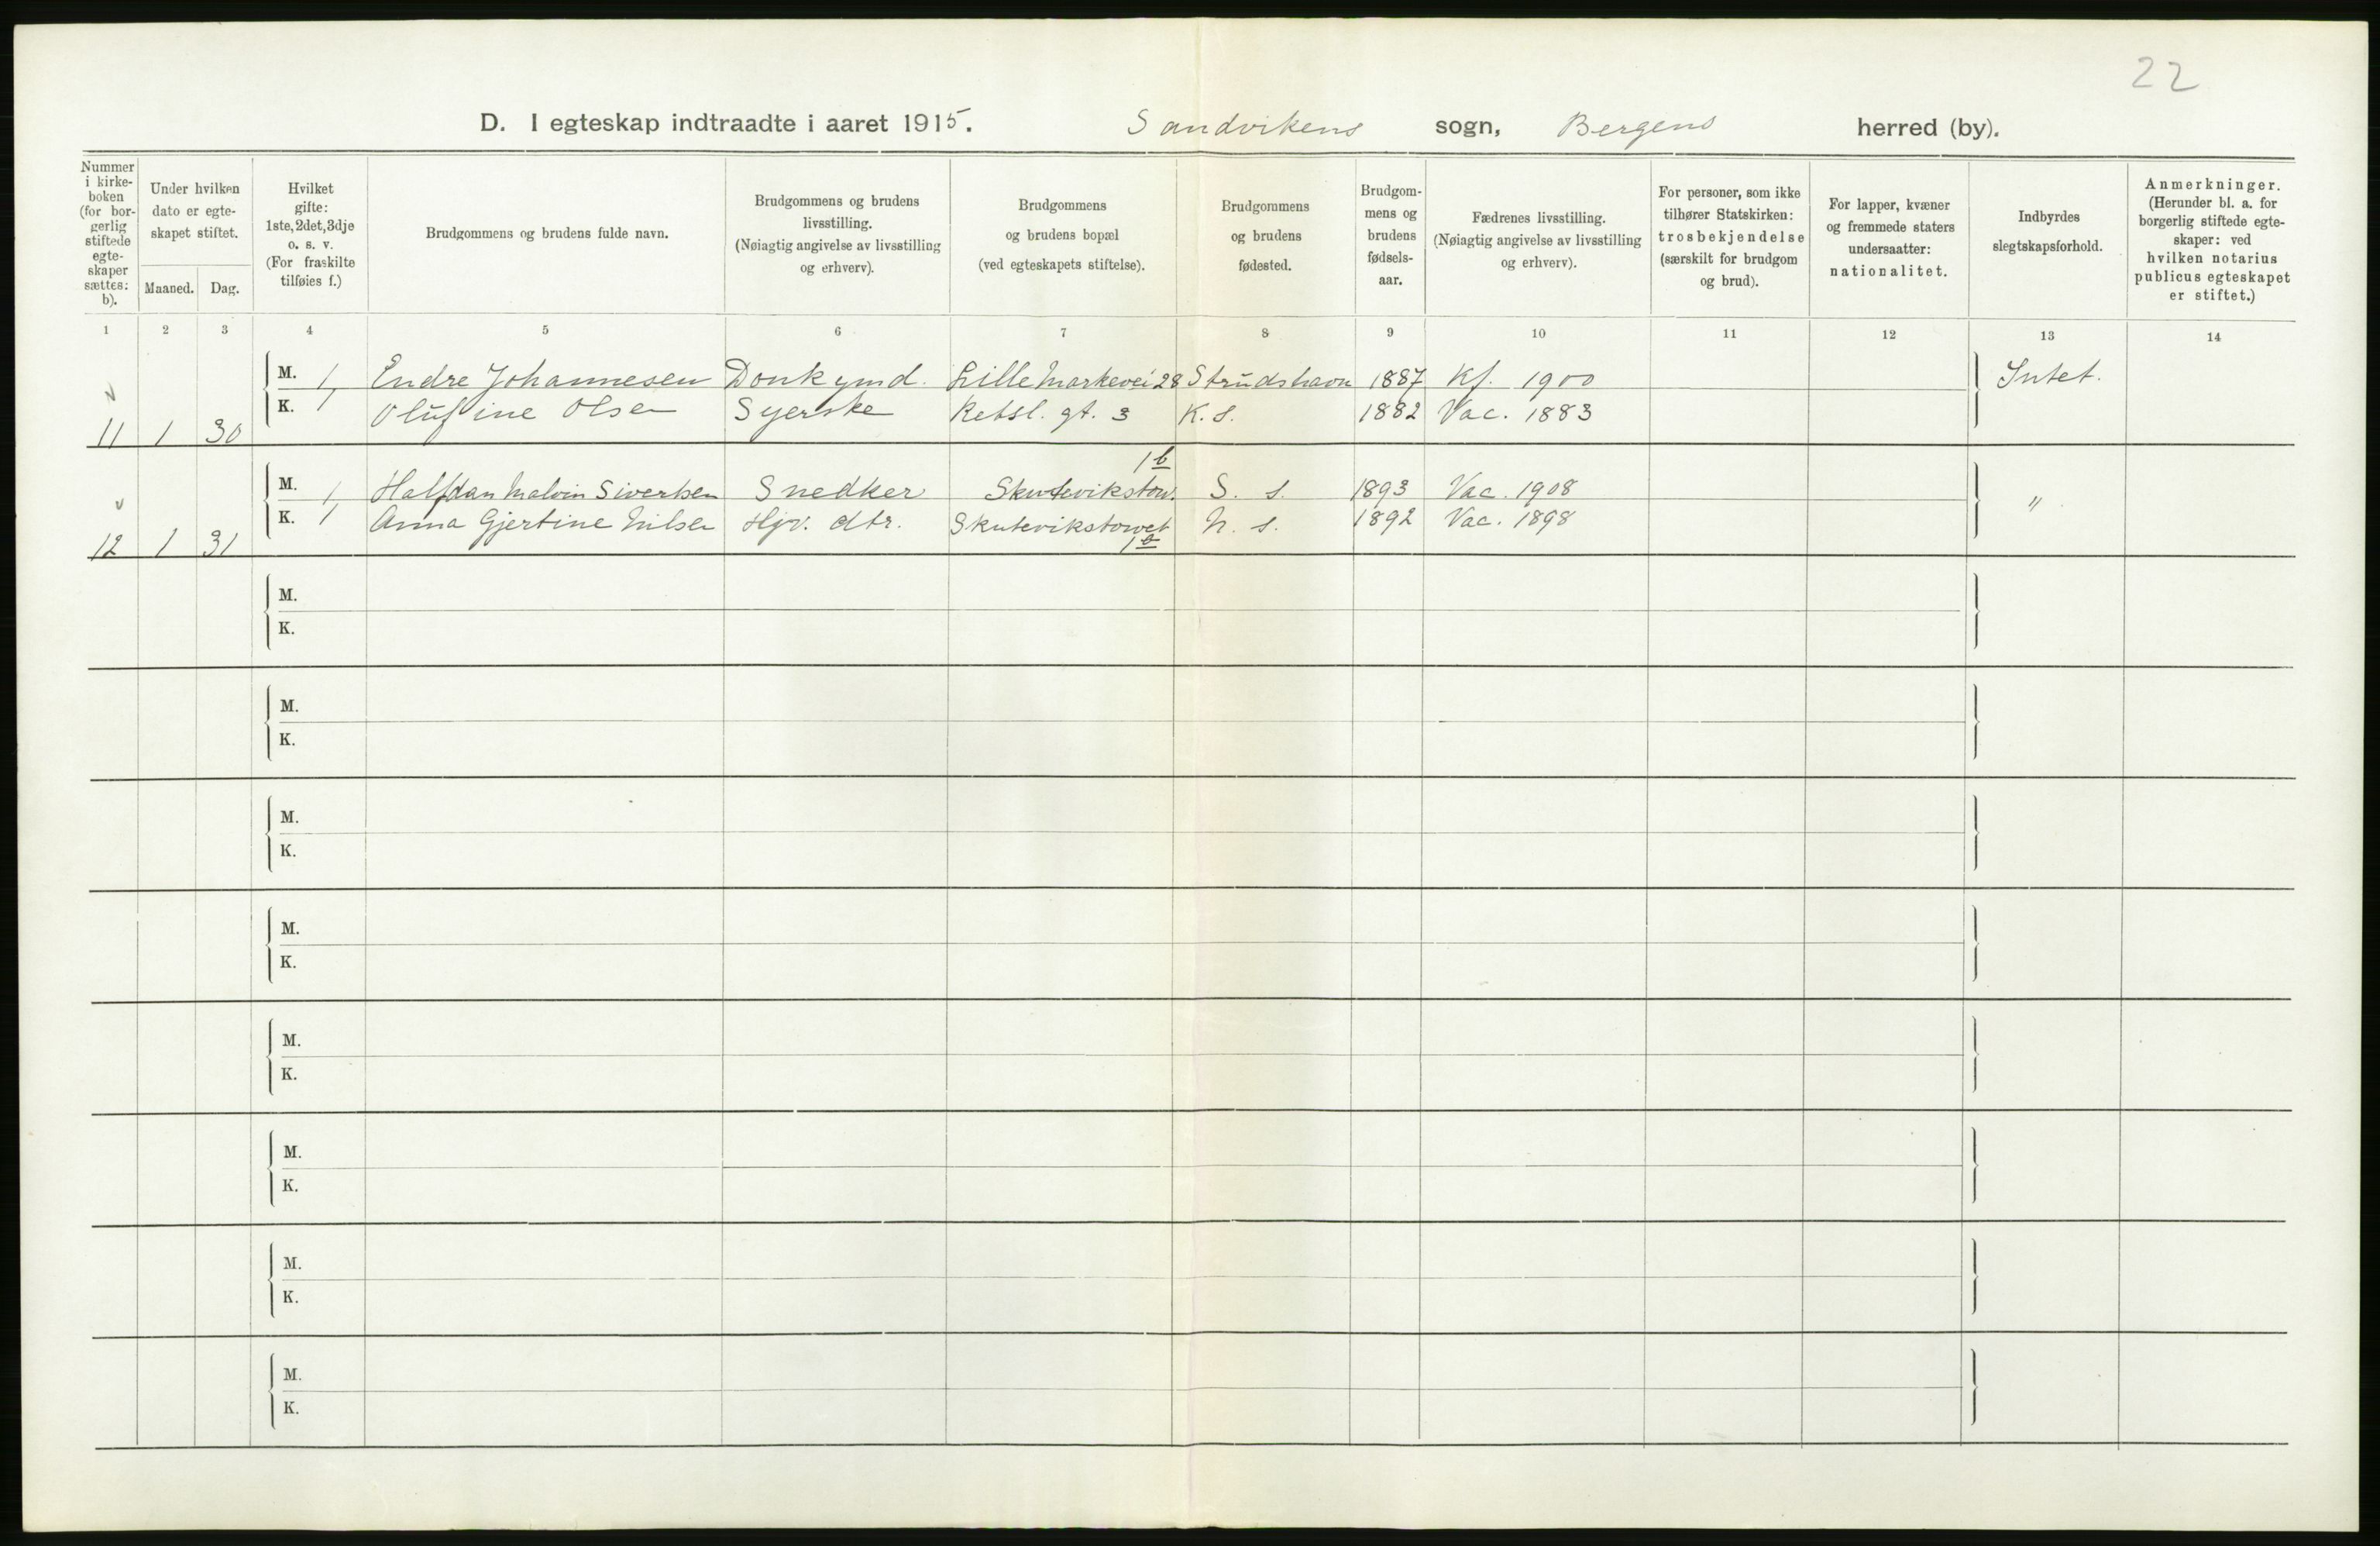 22
D. I egteskap indtraadte i aaret 1915. Sandvikens sogn, Bergens herred (by).
Nummer i kirkeboken (for borgerlig stiftede egteskaper sættes: b).
Under hvilken dato er egteskapet stiftet.
Maaned. Dag.
Hvilket gifte: 1ste, 2det, 3dje o. s. v. (For fraskilte tilføies f.)
Brudgommens og brudens fulde navn.
Brudgommens og brudens livsstilling. (Nøiagtig angivelse av livsstilling og erhverv).
Brudgommens og brudens bopæl (ved egteskapets stiftelse).
Brudgommens og brudens fødested.
Brudgommens og brudens fødselsaar.
Fædrenes livsstilling. (Nøiagtig angivelse av livsstilling og erhverv).
For personer, som ikke tilhører Statskirken: trosbekjendelse (særskilt for brudgom og brud).
For lapper, kvæner og fremmede staters undersaatter: nationalitet.
Indbyrdes slegtskapsforhold.
Anmerkninger. (Herunder bl. a. for borgerlig stiftede egteskaper: ved hvilken notarius publicus egteskapet er stiftet.)
1 2 3 4 5 6 7 8 9 10 11 12 13 14
M. 1, Endre Johannesen Donkymd. Lille Markevei 28 Strudshavn 1887 Kf. 1900 Intet.
K. 1 Olufine Olsen Syerske Rebsl. gt. 3 K. s. 1882 Vac. 1883
11 1 30
1 b
M. 1, Halfdan Malvin Sivertsen Snedker Skutevikstorv. S. s. 1893 Vac. 1908 "
K. 1 Anna Gjertine Nilsen Hjv. dtr. Skutevikstorvet N. s. 1892 Vac. 1898
12 1 31 1 b
M.
K.
M.
K.
M.
K.
M.
K.
M.
K.
M.
K.
M.
K.
M.
K.